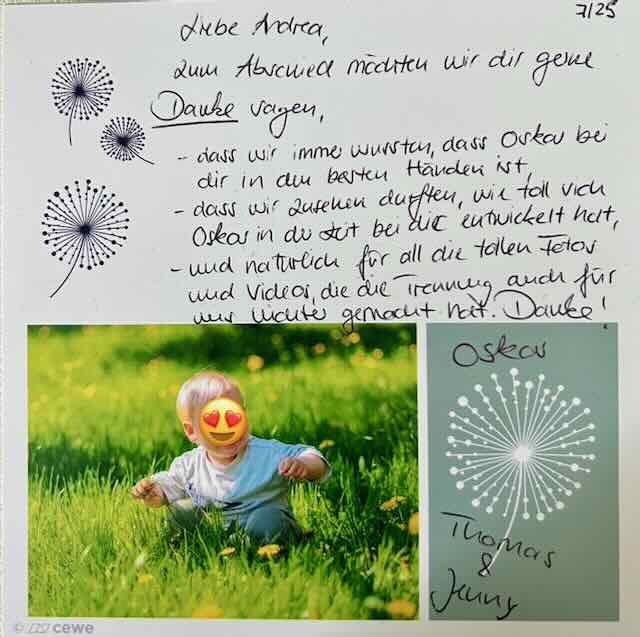 7/25
Liebe Andrea,
zum Abschied möchten wir dir gerne
Danke sagen,
- dass wir immer wussten, dass Oskar bei
dir in den besten Händen ist,
- dass wir zusehen durften, wie toll sich
Oskar in der Zeit bei dir entwickelt hat,
- und natürlich für all die tollen Fotos
und Videos, die die Trennung auch für
uns leichter gemacht hat. Danke!
Oskar
Thomas
&
Jenny
© cewe